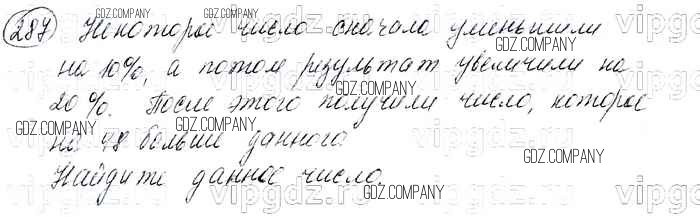 287) Некоторое число сначала уменьшили
на 10%, а потом результат увеличили на
20%. После этого получили число, которое
на 48 больше данного.
Найдите данное число.
GDZ.COMPANY
GDZ.COMPANY
GDZ.COMPANY
GDZ.COMPANY
GDZ.COMPANY
GDZ.COMPANY
GDZ.COMPANY
GDZ.COMPANY